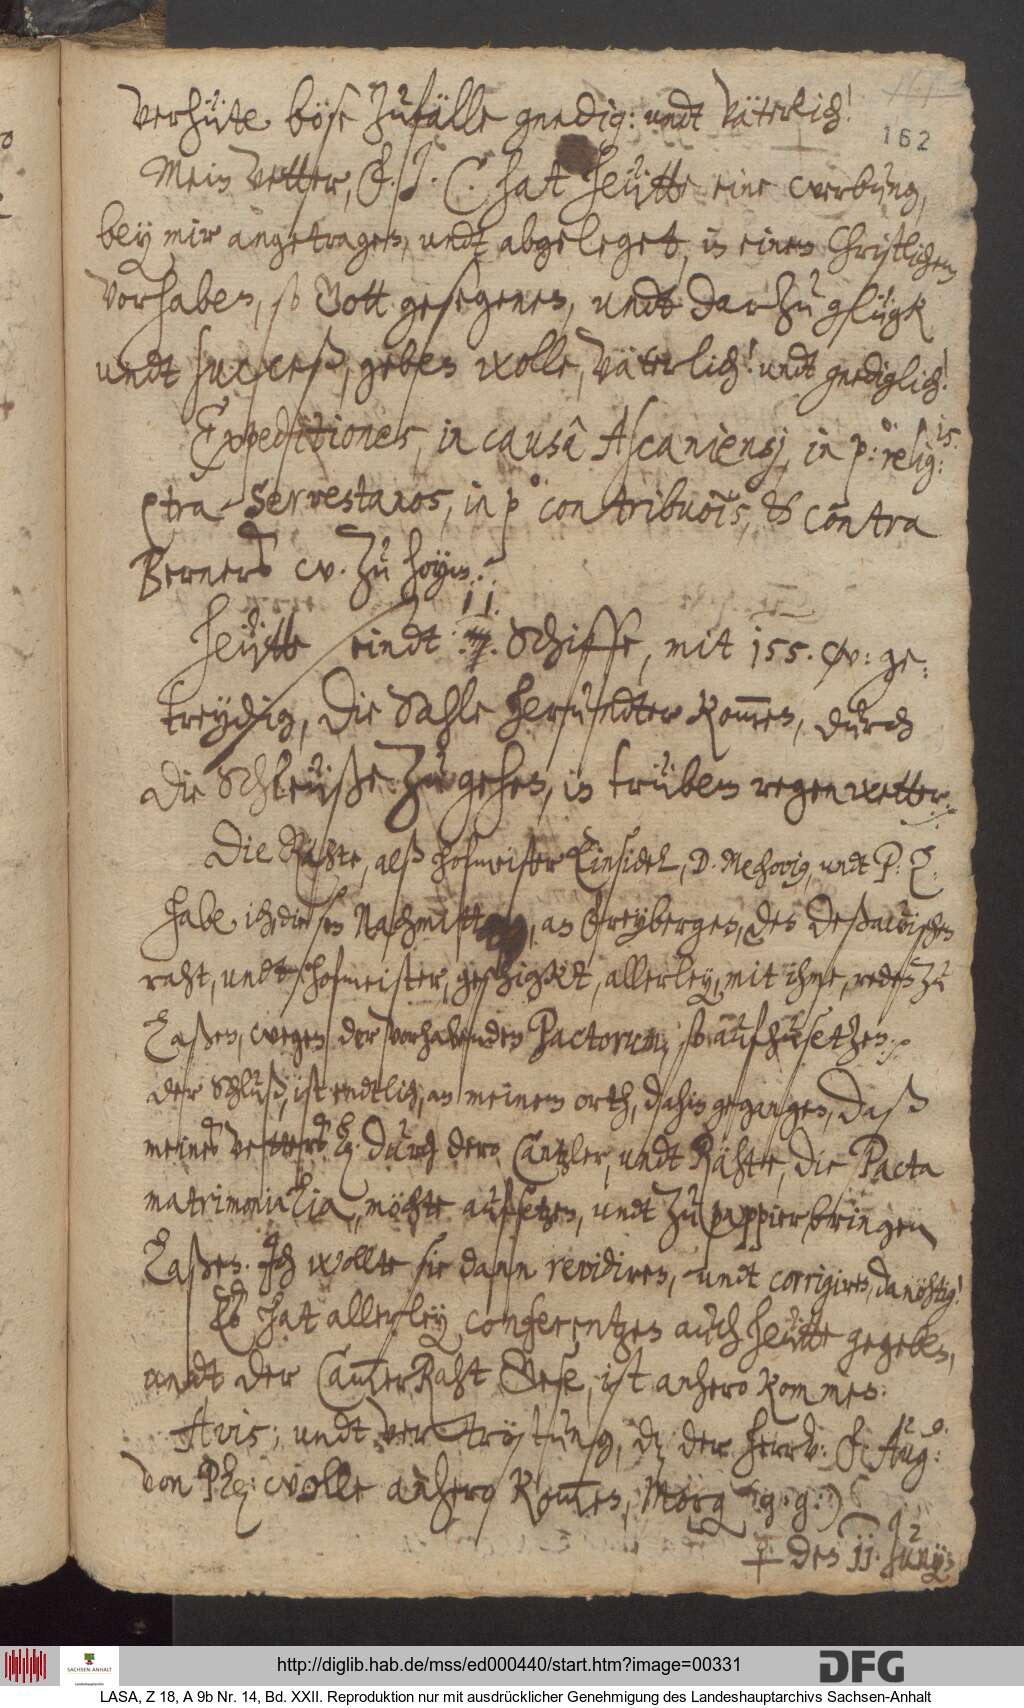 162
verhüte böse zufälle gnedig: undt Väterlich!
Mein Vetter, F. J. C. hat heütte eine werbung,
bey mir angetragen, undt abgeleget, in einem Christlichem
vorhaben, so Gott gesegenen, undt darzu glügk
undt succeß, geben wolle, väterlich! undt gnediglich!
Expeditiones, in causâ Ascaniensj, in p:o relig:is
Ctra Servestanos, in po contributionis, & contra
Berners w. zu Hoym.
Heütte seindt 11. Schiffe, mit 155. w: ge-
treydig, die Sahle herundter kommen, durch
die Schleüße zu gehen, in trübem regenwetter.
Die Rähte, alß hofmeister Einsidel, D. Mechovig, undt P. L.
habe ich, diesen Nachmittag, an Freybergen, des Deßawischen
raht, undt hofmeister, geschigkt, allerley, mit ihme, reden zu
laßen, wegen der vorhabenden Pactorum, so aufzusetzen.
der Schluß, ist endtlich, an meinem orth, dahin gegangen, daß
meines Vettern L. durch dero Cantzler, undt Rähte, die Pacta
matrimonialia, möchte aufsetzen, undt zu pappier bringen
laßen. Ich wollte sie dann revidiren, undt corrigiren, da nöhtig!
Es hat allerley conferentzen auch heütte gegeben,
undt der CammerRaht Gese, ist anhero kommen.
Avis; undt vertröstung, dz der herr v: F. Aug:o
von Plz: wolle anhero kommen, Morg (g. g.)
den 11. Junij:
http://diglib.hab.de/mss/ed000440/start.htm?image=00331
SACHSEN-ANHALT
DFG
LASA, Z 18, A 9b Nr. 14, Bd. XXII. Reproduktion nur mit ausdrücklicher Genehmigung des Landeshauptarchivs Sachsen-Anhalt